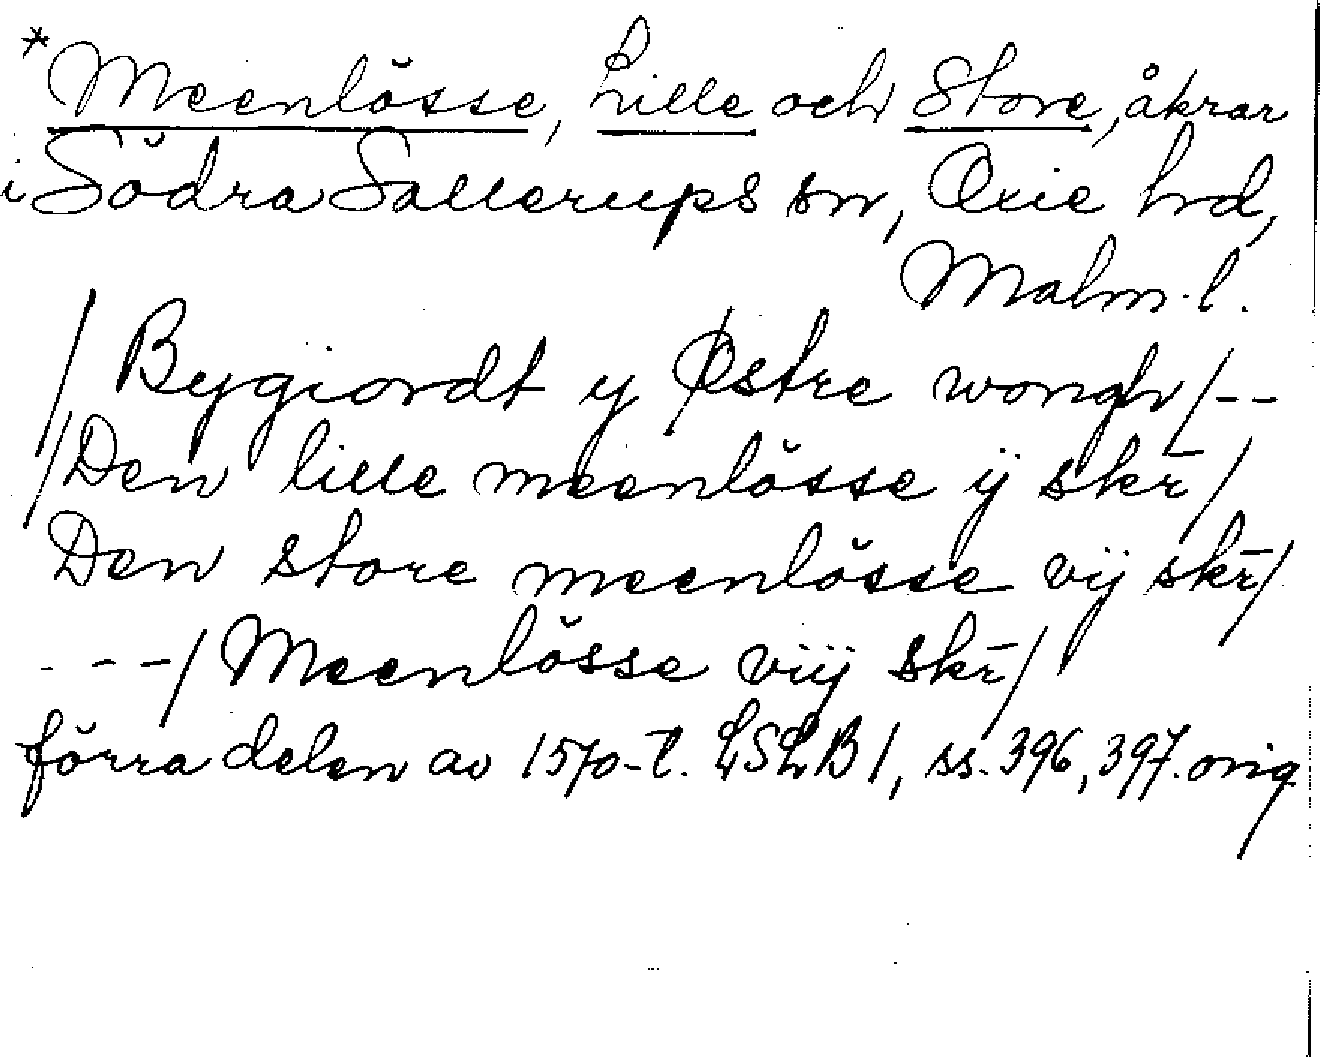 *Meenlösse, Lille och Store, åkrar
i Södra Sallerups sn, Oxie hd,
Malm. l.
/ Bygiordt y Østre wongh/--
/Den lille meenlösse ij skr̄/
Den store meenlösse vij skr̄/
---/Meenlösse viij skr̄/
förra delen av 1570-t. LSLB 1, ss. 396, 397. orig